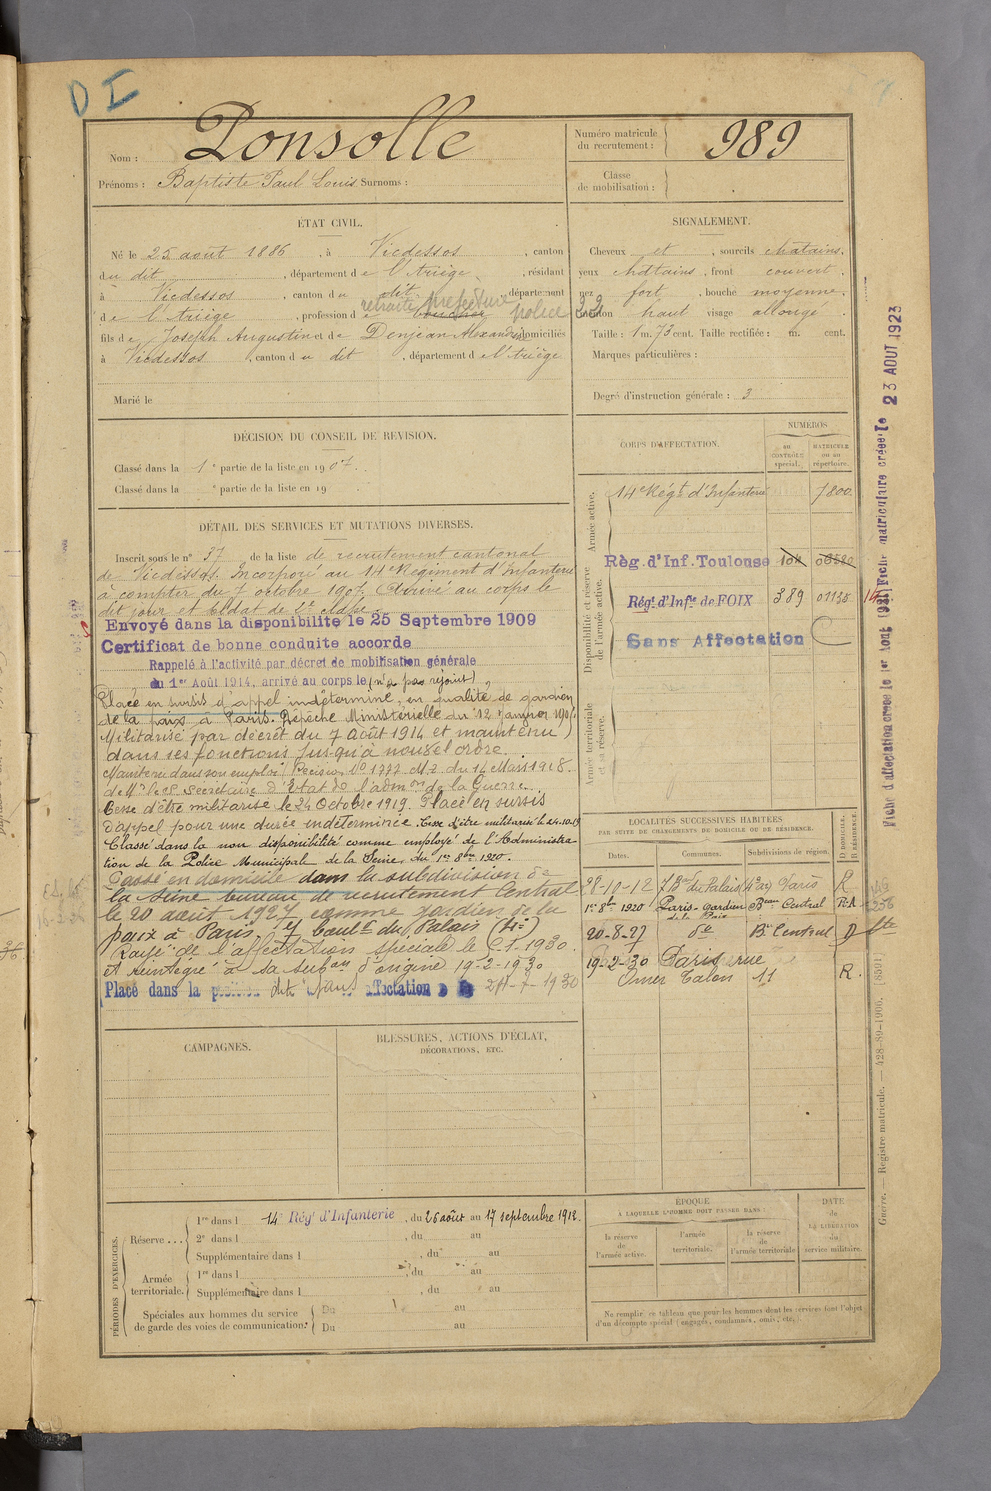 D I
Nom : Ponsolle
Prénoms : Baptiste Paul Louis Surnoms :
Numéro matricule du recrutement : 989
Classe de mobilisation :
ÉTAT CIVIL.
Né le 25 août 1886, à Vicdessos, canton
du dit, département de l'Ariège, résidant
à Vicdessos, canton du dit, département
de l'Ariège, profession de boucher
retraité préfecture police
fils de Joseph Augustin et de Denjean Alexandrine domiciliés
à Vicdessos, canton du dit, département de l'Ariège
Marié le
SIGNALEMENT.
Cheveux et, sourcils châtains,
yeux châtains, front couvert
nez fort, bouche moyenne,
menton haut visage allongé
Taille : 1 m. 73 cent. Taille rectifiée : m. cent.
Marques particulières :
Degré d'instruction générale : 3
DÉCISION DU CONSEIL DE REVISION.
Classé dans la 1e partie de la liste en 1907.
Classé dans la e partie de la liste en 19
DÉTAIL DES SERVICES ET MUTATIONS DIVERSES.
Inscrit sous le n° 37 de la liste de recrutement cantonal
de Vicdessos. Incorporé au 14e Régiment d'Infanterie
à compter du 7 octobre 1907. Arrivé au corps le
dit jour et soldat de 2e classe.
Envoyé dans la disponibilité le 25 Septembre 1909
Certificat de bonne conduite accordé
Rappelé à l'activité par décret de mobilisation générale
du 1er Août 1914, arrivé au corps le (n'a pas rejoint)
Placé en sursis d'appel indéterminé, en qualité de gardien
de la paix à Paris. Dépêche Ministérielle du 12 Janvier
Militarisé par décret du 7 Août 1914 et maintenu
dans ses fonctions jusqu'à nouvel ordre.
Maintenu dans son emploi Décision No 1777 M-2 du 14 Mars 1918.
de Mr le S. Secrétaire d'Etat de l'admon de la Guerre.
Cesse d'être militarisé le 24 Octobre 1919. Placé en sursis
d'appel pour une durée indéterminée. Cesse d'être militarisé le 24-10-19
Classé dans la non disponibilité comme employé de l'Administra-
tion de la Police Municipale de la Seine, du 1er 8bre 1920.
Passé en domicile dans la subdivision de
la Seine bureau de recrutement Central
le 20 août 1927 comme gardien de la
paix à Paris, 7 boult du Palais (4e)
Rayé de l'affectation spéciale le 1930
et réintégré à sa subon d'origine 19-2-1930
Placé dans la position dite sans affectation 1930
CORPS D'AFFECTATION.
NUMÉROS
au CONTRÔLE spécial.
MATRICULE ou au répertoire.
Armée active.
14e Régt d'Infanterie 7800
Disponibilité et réserve de l'armée active.
Règ. d'Inf. Toulouse 104
Régt d'Infie de FOIX 389 01138
Sans Affectation
Armée territoriale et sa réserve.
LOCALITÉS SUCCESSIVES HABITÉES
PAR SUITE DE CHANGEMENTS DE DOMICILE OU DE RÉSIDENCE.
Dates. Communes. Subdivisions de région. D DOMICILE. R RÉSIDENCE.
28-10-12 7 Bd du Palais (4 ar) Paris R
1er 8bre 1920 Paris-gardien de la Paix Beau Central R.A
20-8-27 do Bu Central D
19-2-30 Paris rue
Omer Talon 11 R.
CAMPAGNES.
BLESSURES, ACTIONS D'ÉCLAT,
DÉCORATIONS, ETC.
PÉRIODES D'EXERCICES.
Réserve ... 1re dans l 14e Régt d'Infanterie, du 26 août au 17 septembre 1912.
2e dans l , du au
Supplémentaire dans l , du au
Armée territoriale. 1re dans l , du au
Supplémentaire dans l , du au
Spéciales aux hommes du service de garde des voies de communication. Du au
Du au
ÉPOQUE
À LAQUELLE L'HOMME DOIT PASSER DANS :
la réserve de l'armée active.
l'armée territoriale.
la réserve de l'armée territoriale
DATE de LA LIBÉRATION du service militaire.
Ne remplir ce tableau que pour les hommes dont les services font l'objet
d'un décompte spécial (engagés, condamnés, omis, etc.)
Fiche matriculaire créée le 23 AOUT 1923
Fiche d'affectation créée le 1er Août
Guerre. — Registre matricule. — 428-89-1906. [8591]